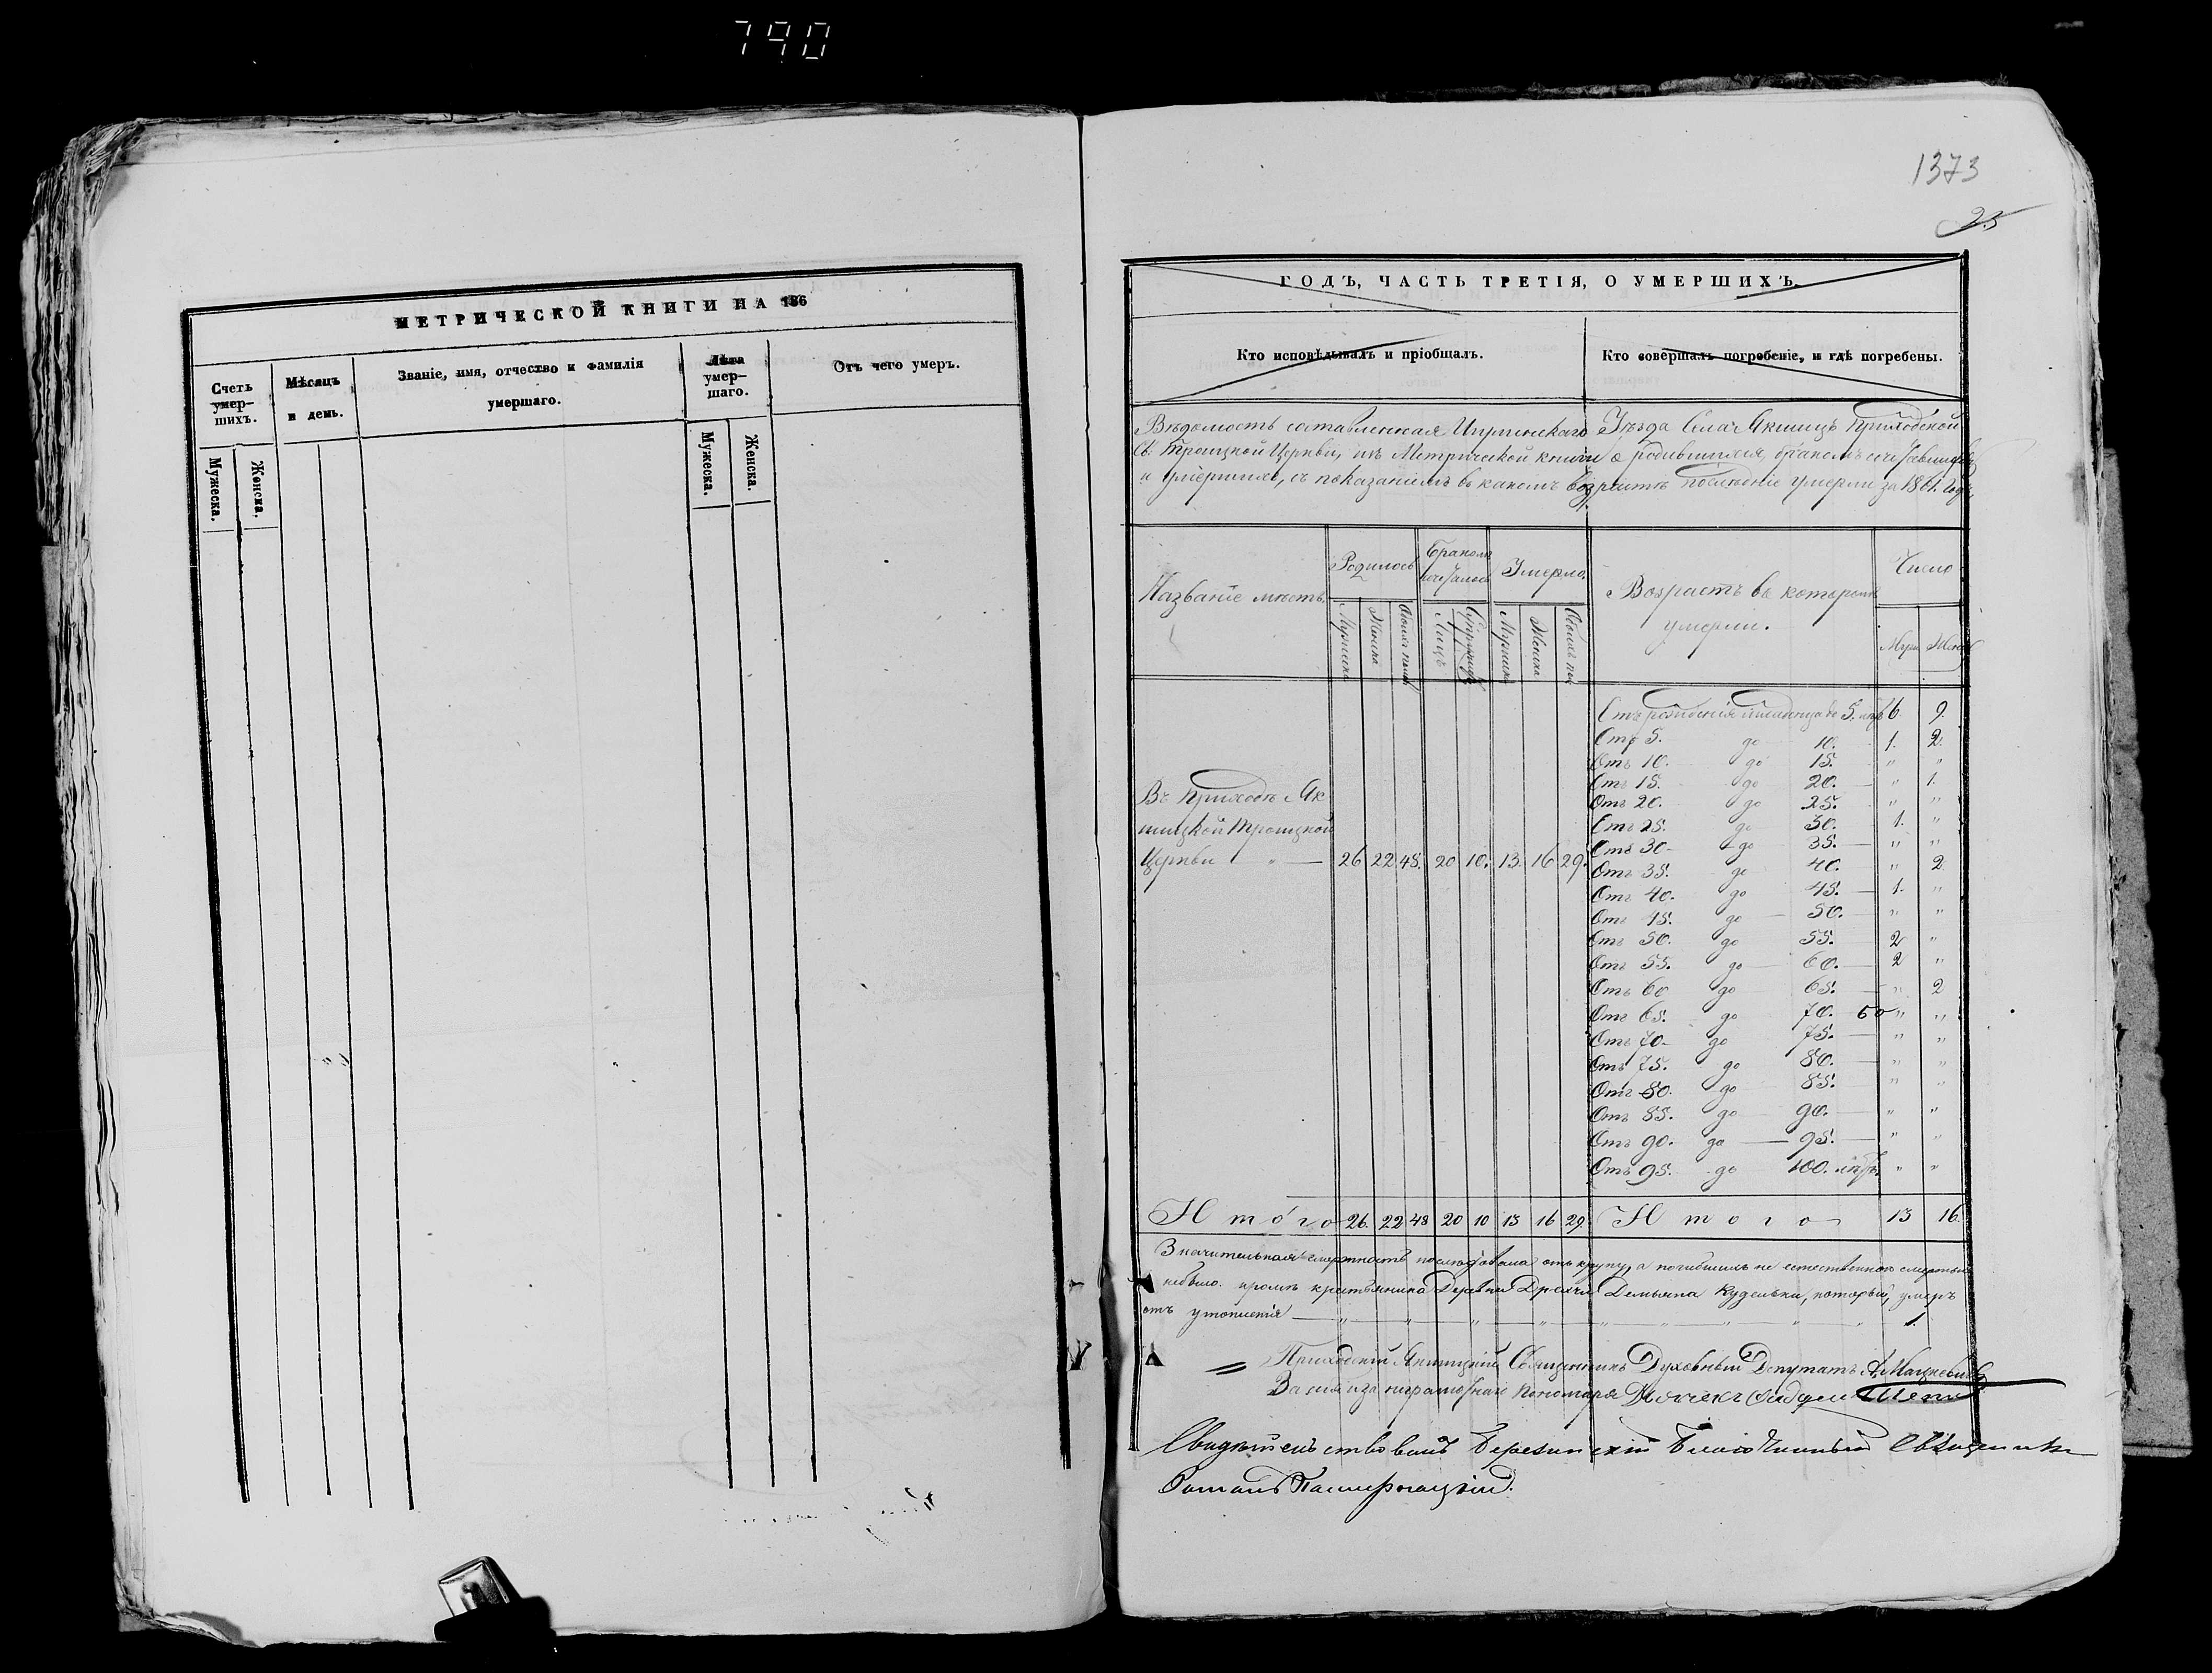 790
1373
25
МЕТРИЧЕСКОЙ КНИГИ НА 186
Счетъ умер-шихъ.
Мѣсяцъ и день.
Званіе, имя, отчество и фамилія умершаго.
Лѣта умер-шаго.
Отъ чего умеръ.
Мужеска.
Женска.
Мужеска.
Женска.
ГОДЪ, ЧАСТЬ ТРЕТІЯ, О УМЕРШИХЪ.
Кто исповѣдывалъ и пріобщалъ.
Кто совершалъ погребеніе, и гдѣ погребены.
Вѣдомость составленная Игуменскаго Уѣзда Села Якшицъ Приходской
Св. Троицкой Церкви, изъ Метрической книги о родившихся, бракомъ сочетавшихся
и умершихъ, съ показаніемъ въ какомъ возрастѣ послѣдніе умерли за 1861 годъ
Названіе мѣстъ
Родилось
Бракомъ сочеталось
Умерло.
Возрастъ въ которомъ умерли.
Число
Мужеска
Женска
Обоихъ полъ
Лицъ
Супружествъ
Мужеска
Женска
Обоихъ полъ
Муж
Женск
Отъ рожденія младенца до 5. лѣтъ 6. 9.
Отъ 5. до 10. 1. 2.
Отъ 10. до 15. " "
Отъ 15. до 20. " 1.
Отъ 20. до 25. " "
Отъ 25. до 30. 1. "
Отъ 30 до 35. " "
Отъ 35. до 40. " 2
Отъ 40. до 45. 1. "
Отъ 45. до 50. " "
Отъ 50. до 55. 2 "
Отъ 55. до 60. 2 "
Отъ 60 до 65. " 2
Отъ 65. до 70. " "
Отъ 70 до 75. " "
Отъ 75. до 80. " "
Отъ 80. до 85. " "
Отъ 85. до 90. " "
Отъ 90. до 95. " "
Отъ 95. до 100. лѣтъ. " "
Въ приходѣ Як
шицкой Троицкой
Церкви — " — 26 22 48. 20 10. 13. 16 29.
Итого 26. 22 48 20 10 13 16 29. Итого 13 16.
Значительная смертность послѣдовала отъ крупу, а погибшихъ не естественною смертью
небыло. кромѣ крестьянина Деревни Дречи Демьяна Кудельки, который, умеръ
отъ утопленія 1.
Приходскій Якшицкій Священникъ Духовный Депутатъ А. Мацкевичъ
За себя и за неграмотнаго пономаря Дьячекъ
Свидѣтельствовалъ Березинскій Благочинный Священникъ